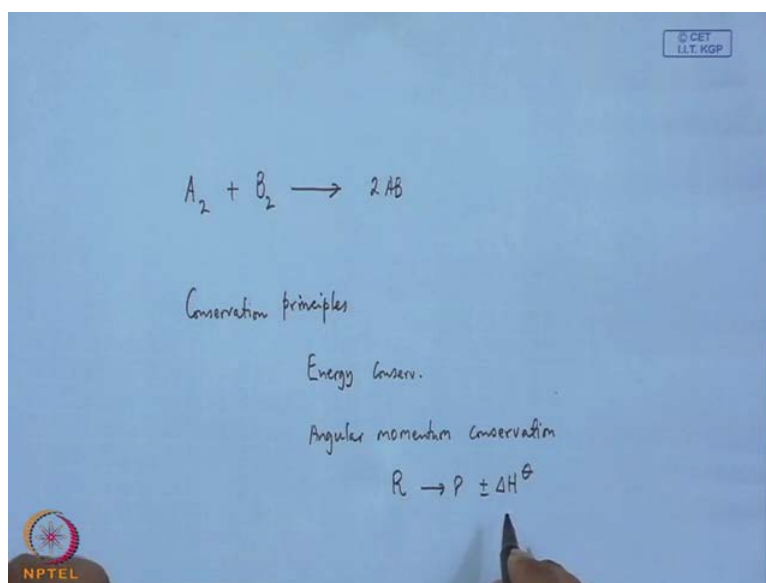 © CET
I.I.T. KGP
A₂ + B₂ ⟶ 2 AB
Conservation principles
Energy Conserv.
Angular momentum conservation
R → P ± ΔH^θ
NPTEL